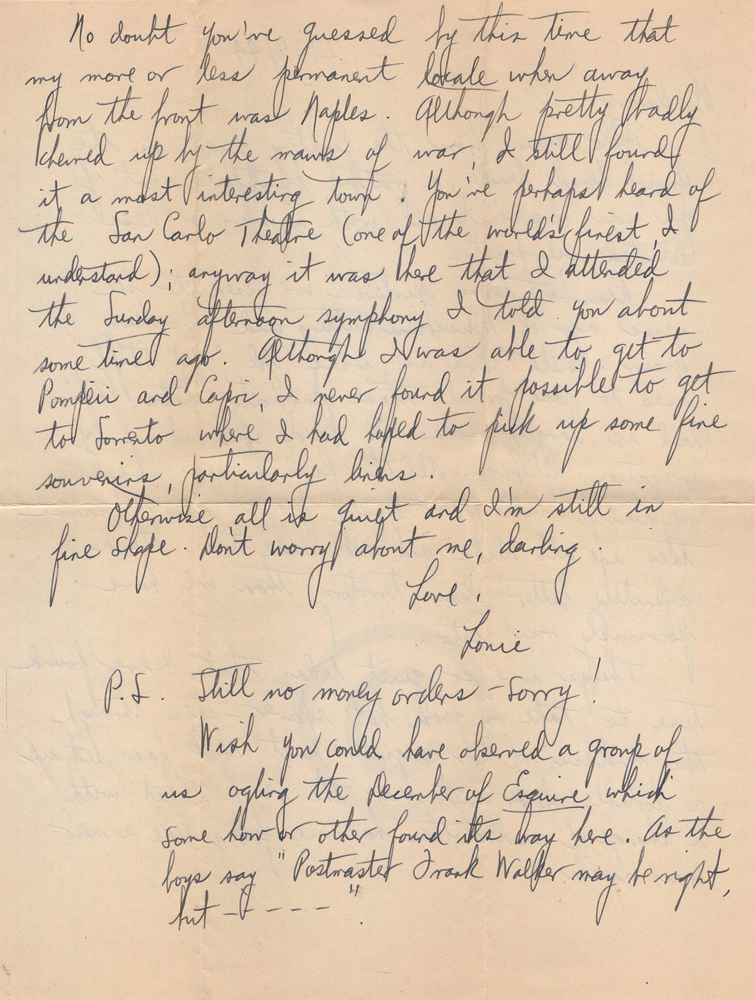 No doubt you've guessed by this time that
my more or less permanent locale when away
from the front was Naples. Although pretty badly
chewed up by the maws of war, I still found
it a most interesting town. You've perhaps heard of
the San Carlo Theatre (one of the world's finest, I
understand); anyway it was there that I attended
the Sunday afternoon symphony I told you about
some time ago. Although I was able to get to
Pompeii and Capri, I never found it possible to get
to Sorrento where I had hoped to pick up some fine
souvenirs, particularly linens.
Otherwise all is quiet and I'm still in
fine shape. Don't worry about me, darling.
Love,
Louie
P.S. Still no money orders - sorry!
Wish you could have observed a group of
us ogling the December of Esquire which
some how or other found its way here. As the
boys say "Postmaster Frank Walker may be right,
but - - - - - ".